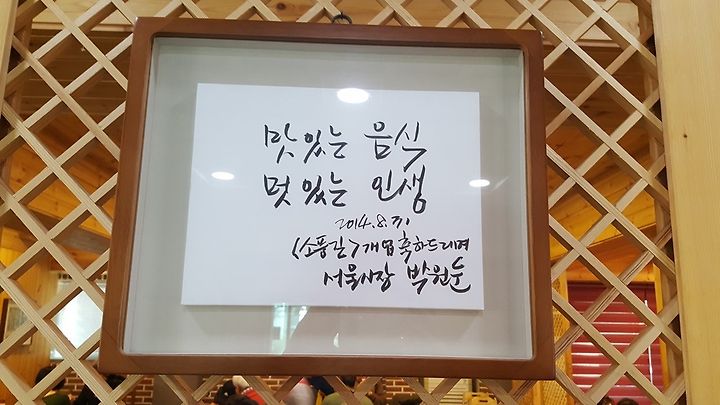 맛있는 음식
멋있는 인생
2014.8.31
<소풍길>개업 축하드리며
서울시장 박원순